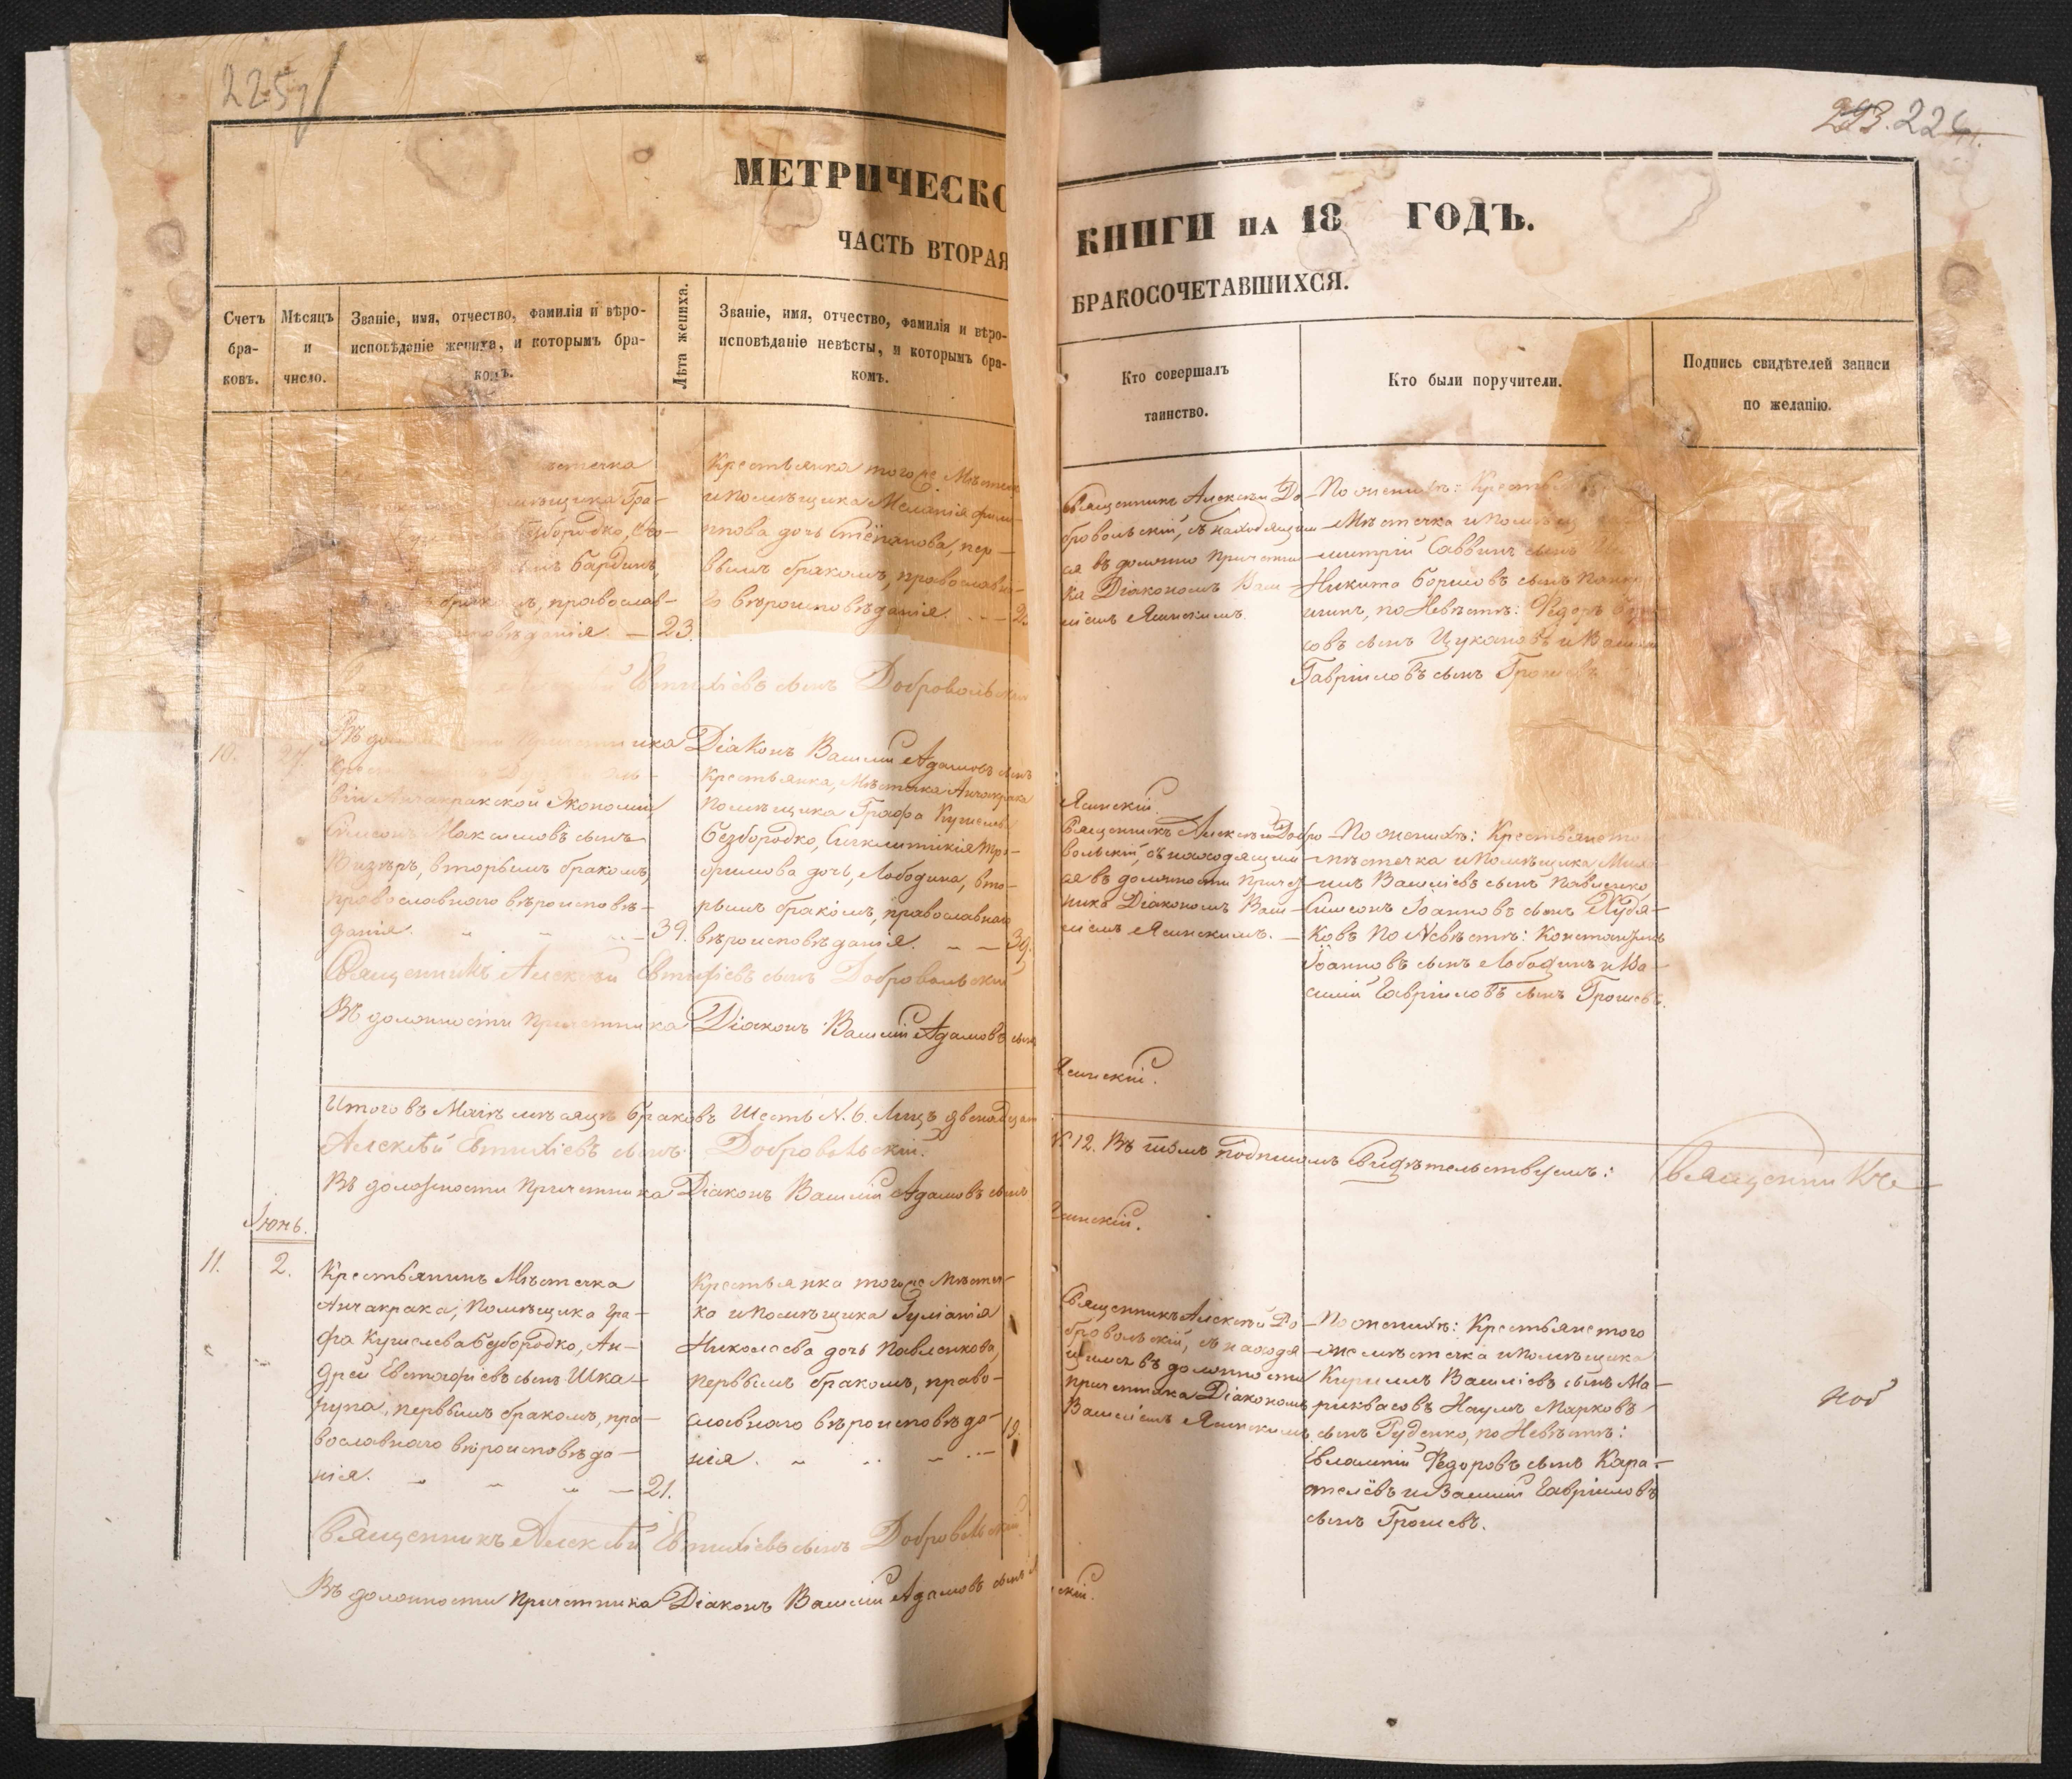 225
293. 224.
МЕТРИЧЕСКО
ЧАСТЬ ВТОРАЯ
КНИГИ НА 18 ГОДЪ.
БРАКОСОЧЕТАВШИХСЯ.
Счетъ бра-
ковъ.
Мѣсяцъ
и
число.
Званіе, имя, отчество, фамилія и вѣро-
исповѣданіе жениха, и которымъ бра-
комъ.
Лѣта жениха.
Званіе, имя, отчество, фамилія и вѣро-
исповѣданіе невѣсты, и которымъ бра-
комъ.
Кто совершалъ
таинство.
Кто были поручители.
Подпись свидѣтелей записи
по желанію.
стечка
мѣщика Гра-
збородко,
сынъ Бардинъ,
бракомъ, православ-
повѣданія. — 23.
Крестьянка тогоже Мѣстеч
и помѣщика Меланія Фили-
пова дочь Степанова, пер-
вымъ бракомъ, православна-
го вѣроисповѣданія. - - 2
Священникъ Алексѣй До-
бровольскій, съ находящим
ся въ должно Причетни
ка Діакономъ Васи-
ліемъ Ясинскимъ.
По женихѣ: Крестья
Мѣстечка и Помѣщ
митрій Саввинъ сынъ
Никита Борисовъ сынъ
шинъ, по Невѣстѣ: Федоръ
совъ сынъ Цукановъ и Васи
Гавріиловъ сынъ Грошевъ
Евтихіевъ сынъ Добровольскій
Въ до причетника Діаконъ Василій Адамовъ сынъ
Ясинскій.
10.
27.
Крест
віи Анчакракской Экономіи,
Симеонъ Максимовъ сынъ
Визиръ, вторымъ бракомъ,
православнаго вѣроисповѣ-
данія. - - - 39.
Крестьянка, Мѣстечка Анчакрака
Помѣщика Графа Кушелева
Безбородко, Синклитикія Тро-
фимова дочь, Лободина, вто-
рымъ бракомъ, православнаго
вѣроисповѣданія. - - 39.
Священникъ Алексѣй Добро
вольскій, съ находящим
ся въ должности Причет
ника Діакономъ Васи-
ліемъ Ясинскимъ.
По женихѣ: Крестьяне то
мѣстечка и Помѣщика Миха-
илъ Васіліевъ сынъ Павленко,
Симеонъ Іоанновъ сынъ Худя-
ковъ По Невѣстѣ: Константинъ
Іоанновъ сынъ Лободинъ и Ва-
силій Гавріиловъ сынъ Грошевъ.
Священникъ Алексѣй Евтихіевъ сынъ Добровольскій
Въ должности Причетника Діаконъ Василій Адамовъ сынъ
Ясинскій.
Итого въ Маіѣ мѣсяцѣ браковъ Шесть N. 6. Лицъ двенадцат
N. 12. Въ томъ подписомъ Свидѣтельствуемъ: Священникъ
Алексѣй Евтихіевъ сынъ Добровольскій.
Въ должности Причетника Діаконъ Василій Адамовъ сынъ
Ясинскій.
Іюнь.
11.
2.
Крестьянинъ Мѣстечка
Анчакрака, Помѣщика Гра-
фа Кушелева Безбородко, Ан-
дрей Евстафіевъ сынъ Шка-
рупа, первымъ бракомъ, пра-
вославнаго вѣроисповѣда-
нія. - - - 21.
Крестьянка тогоже Мѣстеч-
ка и Помѣщика Гуліанія
Николаева дочь Павленкова,
первымъ бракомъ, право-
славнаго вѣроисповѣда-
нія. - - - 19.
Священникъ Алексѣй До-
бровольскій, съ находя
щимся въ должности
причетника Діакономъ
Василіемъ Ясинскимъ.
По женихѣ: Крестьяне того
же мѣстечка и помѣщика
Кириллъ Васіліевъ сынъ Ма-
риквасовъ Наумъ Марковъ
сынъ Руденко, по Невѣстѣ:
Евлампій Федоровъ сынъ Кара-
телевъ и Василій Гавріиловъ
сынъ Грошевъ.
Священникъ Алексѣй Евтихіевъ сынъ Добровольскій
Въ должности Причетника Діаконъ Василій Адамовъ сынъ
скій.